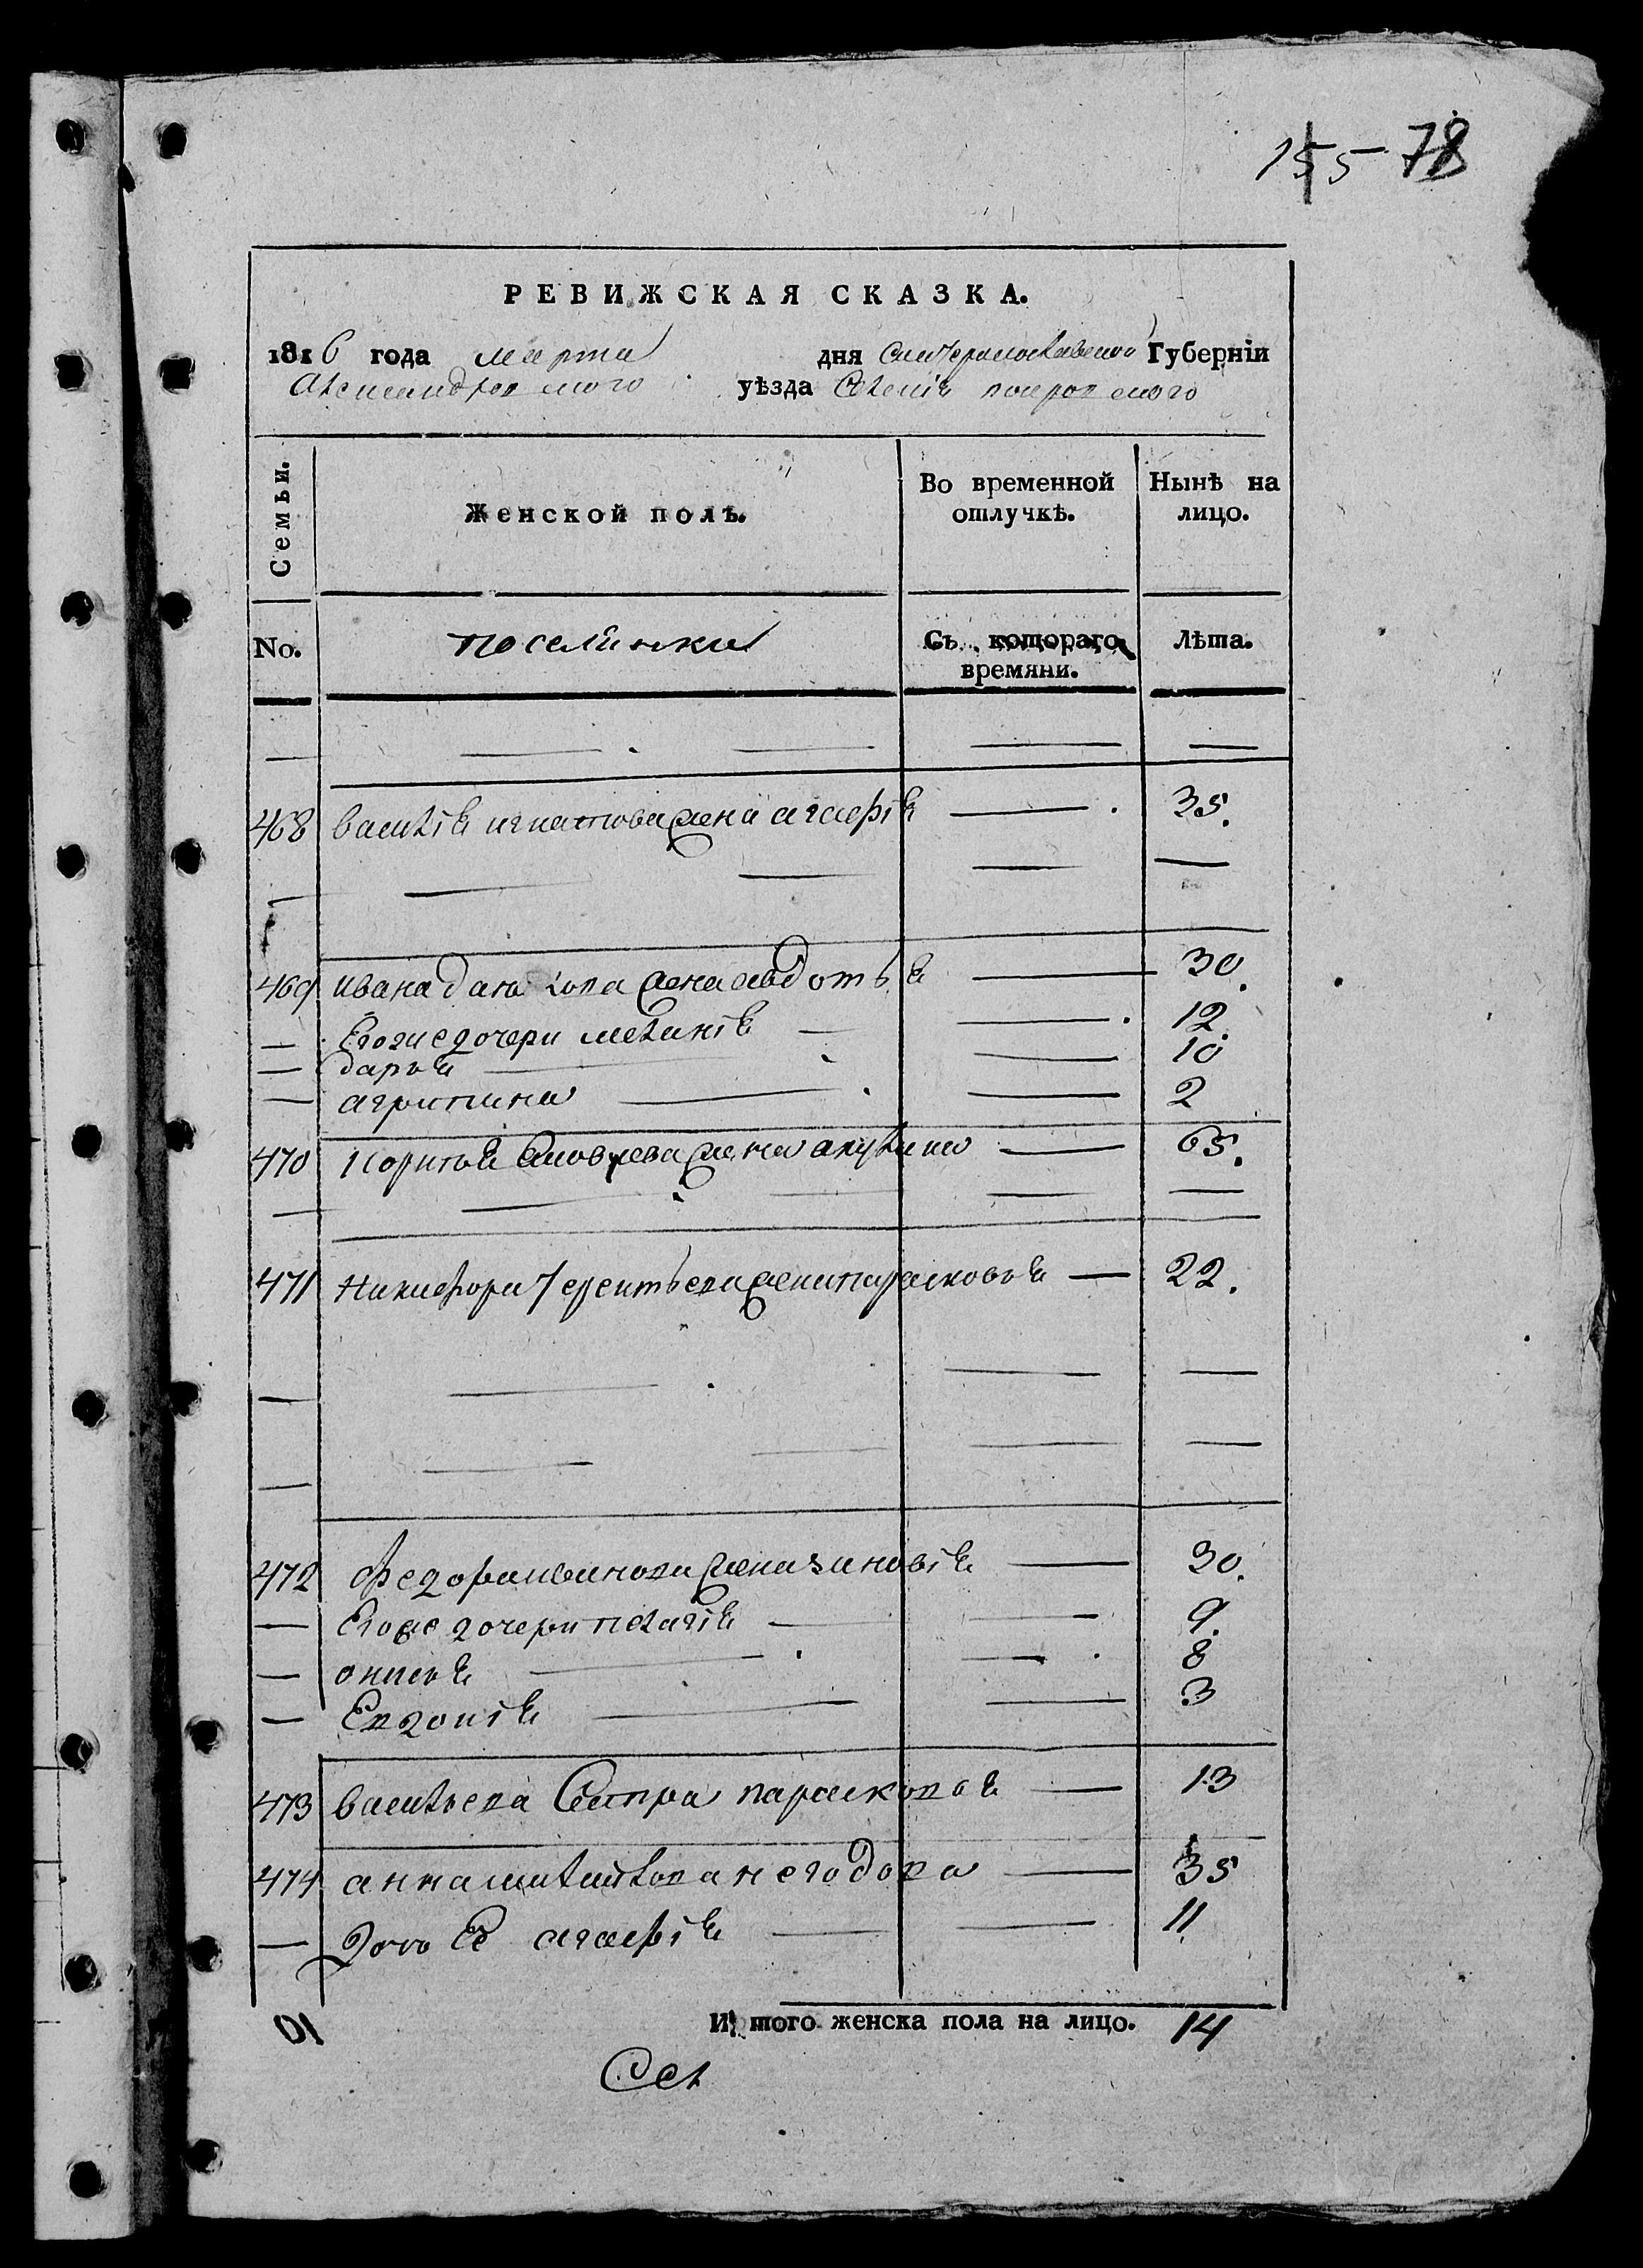 155 78
РЕВИЖСКАЯ СКАЗКА.
1816 года марта дня Екатеринославской Губерніи
Александровского уѣзда Селенія покровского
Семьи. Женской полъ. Во временной отлучкѣ. Нынѣ на лицо.
No. поселянки Съ котораго времяни. Лѣта.
468 василія игнатова жена агафія 35.
469 ивана жена авдотья 30.
Егоже дочери меланія 12.
дарья 10
агрипина 2
470 жена акулина 65.
471 Никифора терентьева жена парасковья 22.
472 федора иванова жена зиновія 30.
Егоже дочери пелагія 9.
онисья 8
Евдокія 3
473 васильева Сестра парасковья 13
474 анна негодова 35
дочь Её агафія 11
10 И того женска пола на лицо. 14
Сел